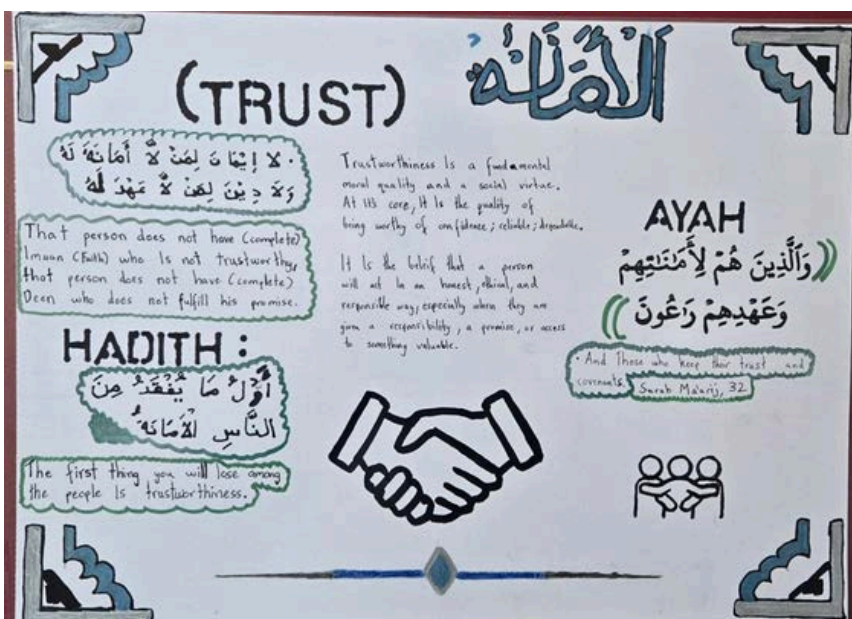 (TRUST)
الأمانة
لا إيمان لمن لا أمانة له
ولا دين لمن لا عهد له
That person does not have (complete)
Imaan (Faith) who Is not trustworthy,
that person does not have (complete)
Deen who does not fulfill his promise.
HADITH :
أول ما يُفْقَدُ مِنَ
النَّاسِ الْأَمَانَةُ
The first thing you will lose among
the people Is trustworthiness.
Trustworthiness Is a fundamental
moral quality and a social virtue.
At its core, It Is the quality of
being worthy of confidence; reliable; dependable.
It Is the belief that a person
will act In an honest, ethical, and
responsible way, especially when they are
given a responsibility, a promise, or access
to something valuable.
AYAH
وَٱلَّذِينَ هُمْ لِأَمَـٰنَـٰتِهِمْ
وَعَهْدِهِمْ رَٰعُونَ
· And Those who keep their trust and
covenants. Surah Ma'arij, 32